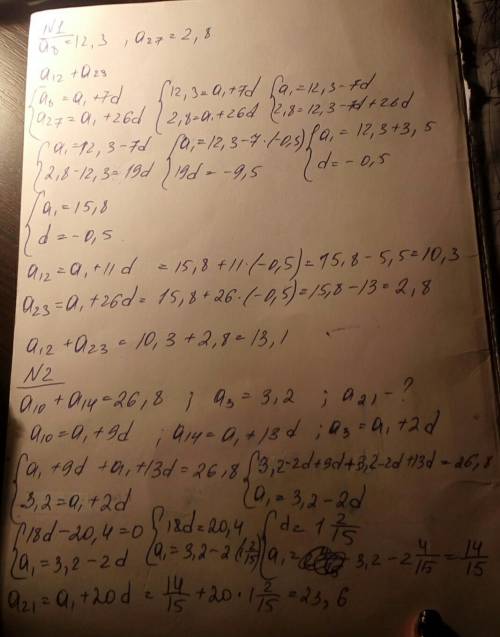 N1
a₈ = 12,3 , a₂₇ = 2,8
a₁₂ + a₂₃
{ a₈ = a₁ + 7d { 12,3 = a₁ + 7d { a₁ = 12,3 - 7d
{ a₂₇ = a₁ + 26d { 2,8 = a₁ + 26d { 2,8 = 12,3 - 7d + 26d
{ a₁ = 12,3 - 7d { a₁ = 12,3 - 7·(-0,5) { a₁ = 12,3 + 3,5
{ 2,8 - 12,3 = 19d { 19d = -9,5 { d = -0,5
{ a₁ = 15,8
{ d = -0,5
a₁₂ = a₁ + 11d = 15,8 + 11·(-0,5) = 15,8 - 5,5 = 10,3
a₂₃ = a₁ + 26d = 15,8 + 26·(-0,5) = 15,8 - 13 = 2,8
a₁₂ + a₂₃ = 10,3 + 2,8 = 13,1
N2
a₁₀ + a₁₄ = 26,8 ; a₃ = 3,2 ; a₂₁ - ?
a₁₀ = a₁ + 9d ; a₁₄ = a₁ + 13d ; a₃ = a₁ + 2d
{ a₁ + 9d + a₁ + 13d = 26,8 { 3,2 - 2d + 9d + 3,2 - 2d + 13d = 26,8
{ 3,2 = a₁ + 2d { a₁ = 3,2 - 2d
{ 18d - 20,4 = 0 { 18d = 20,4 { d = 1 2/15
{ a₁ = 3,2 - 2d { a₁ = 3,2 - 2·(1 2/15) { a₁ = 3,2 - 2 4/15 = 14/15
a₂₁ = a₁ + 20d = 14/15 + 20·1 2/15 = 23,6